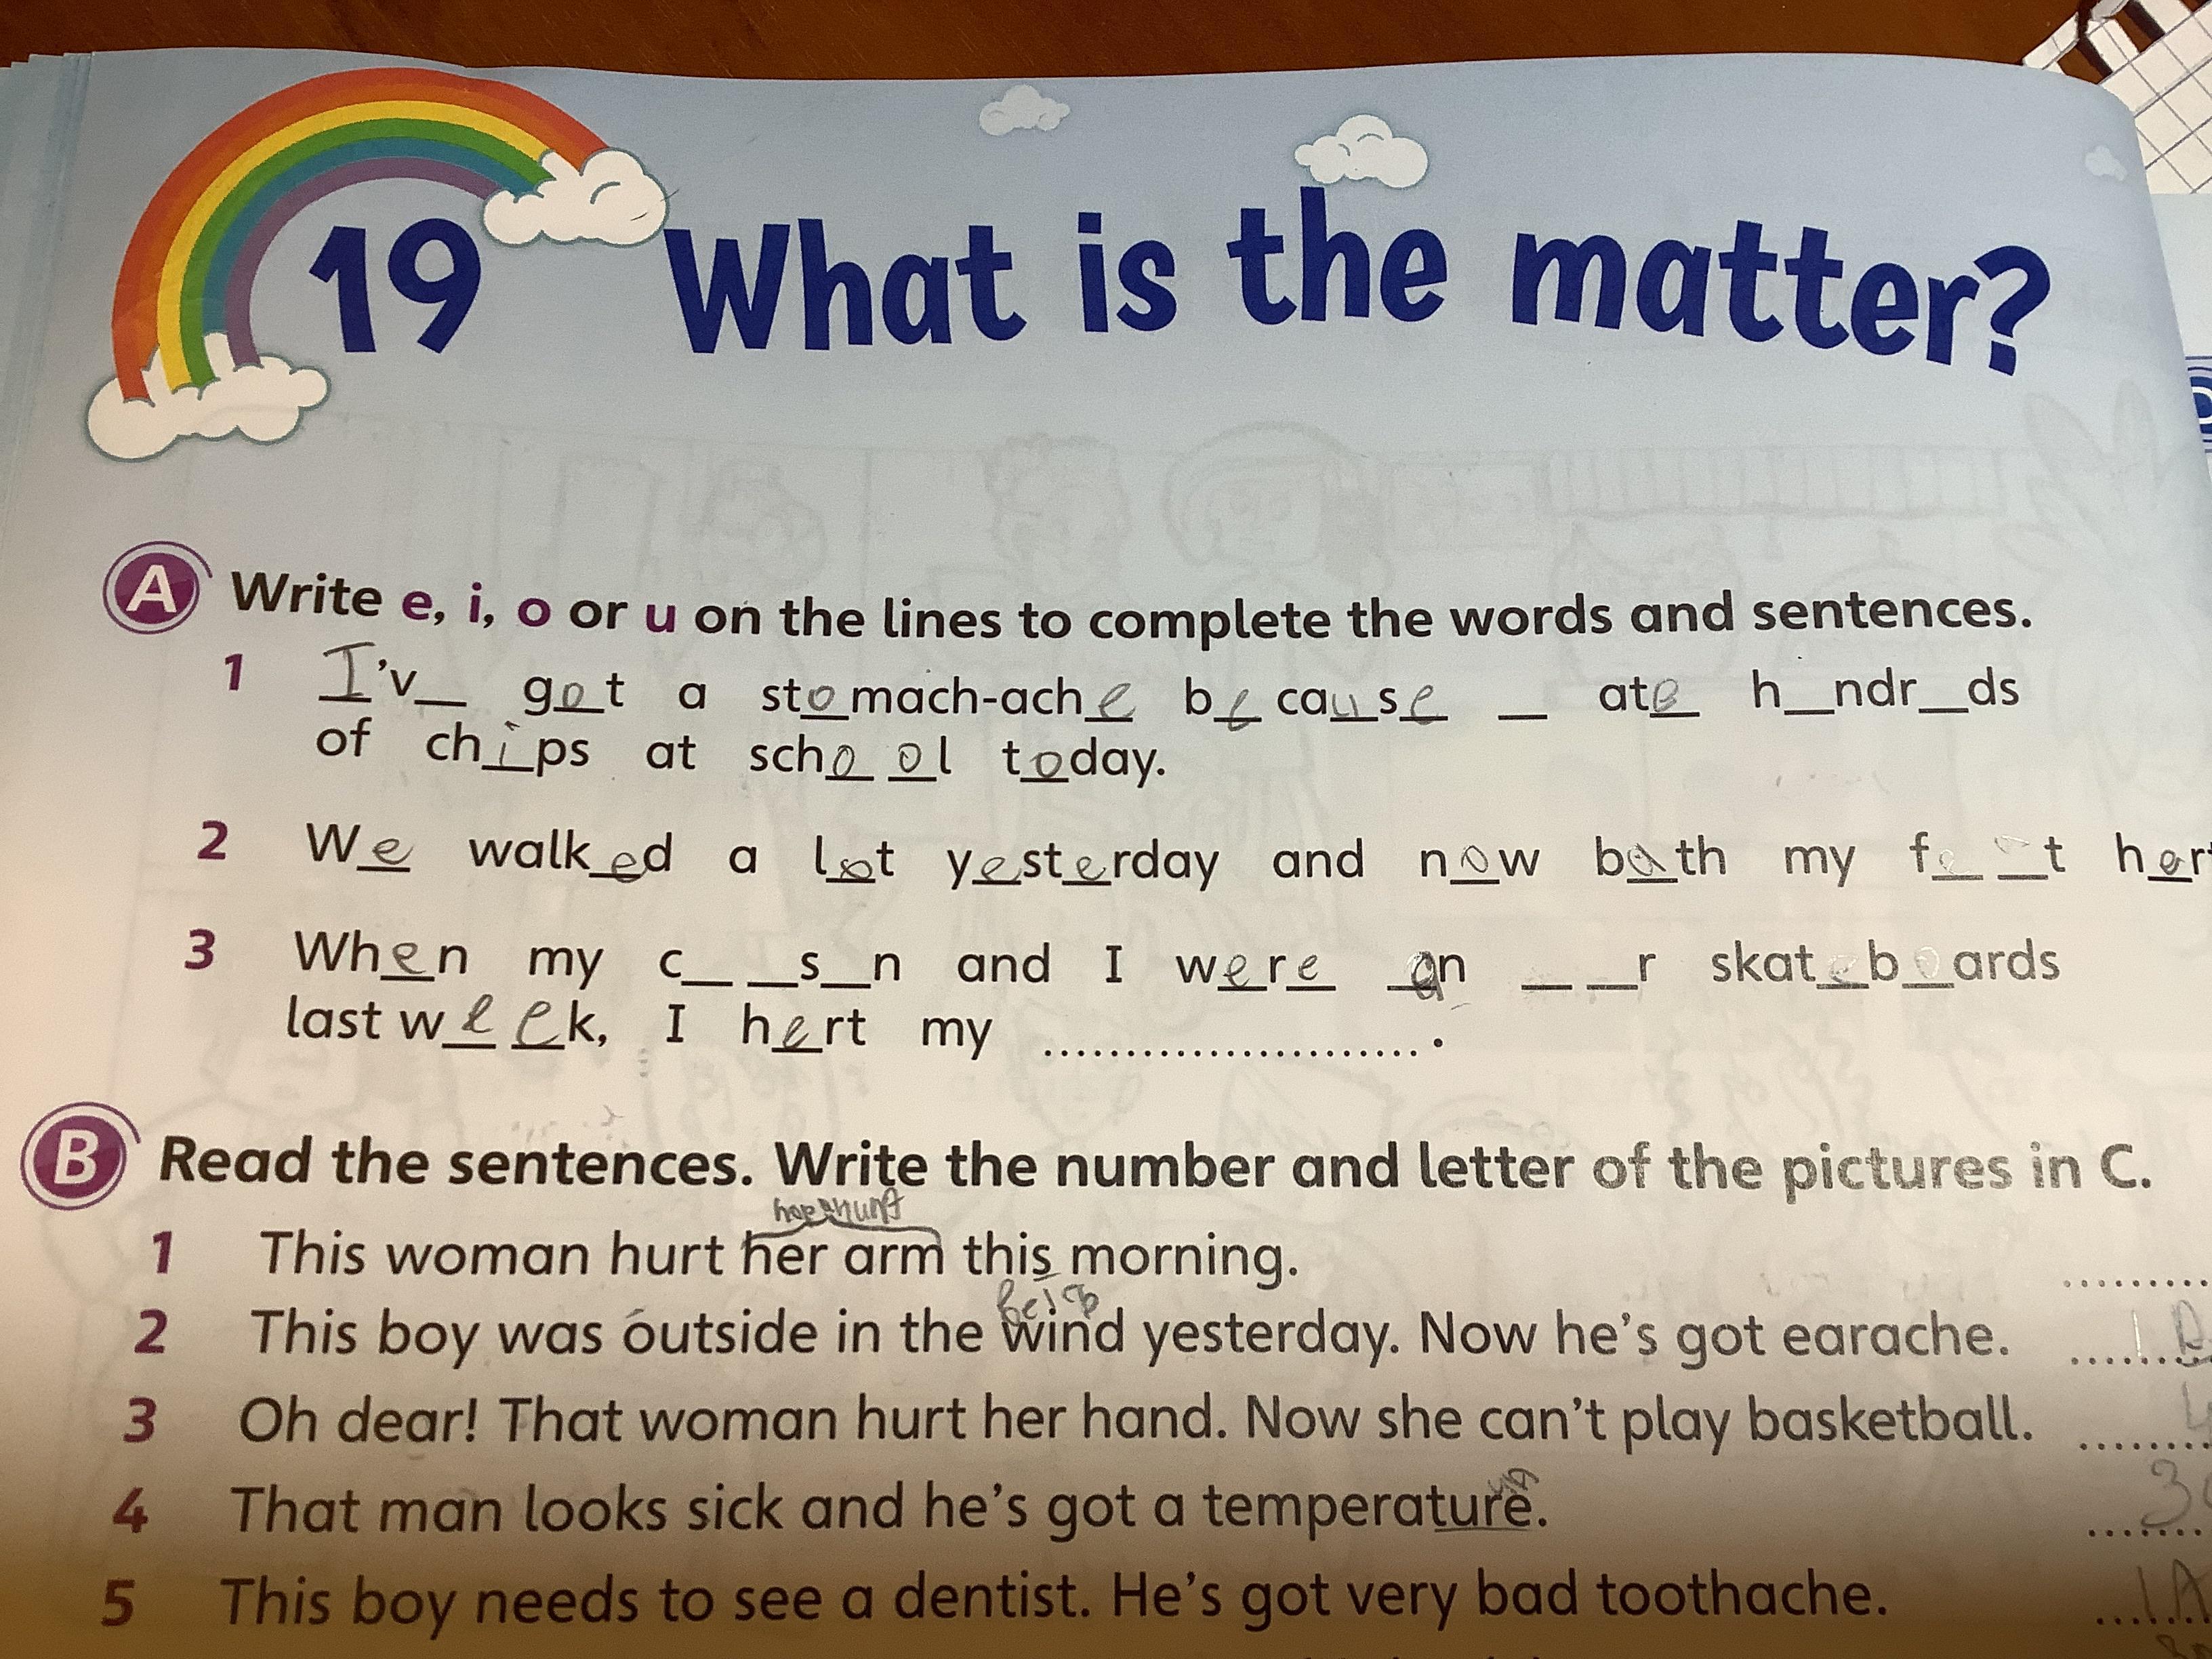 19 What is the matter?
A Write e, i, o or u on the lines to complete the words and sentences.
1 I'v_ got a stomach-ache because _ ate h_ndr_ds
of chips at school today.
2 We walked a lot yesterday and now both my f t h r
3 When my c_ _s_n and I were n _ _r skateboards
last week, I hert my ........................ .
B Read the sentences. Write the number and letter of the pictures in C.
1 This woman hurt her arm this morning. .........
2 This boy was outside in the wind yesterday. Now he's got earache. 1
3 Oh dear! That woman hurt her hand. Now she can't play basketball.
4 That man looks sick and he's got a temperature. 3
5 This boy needs to see a dentist. He's got very bad toothache. 1A